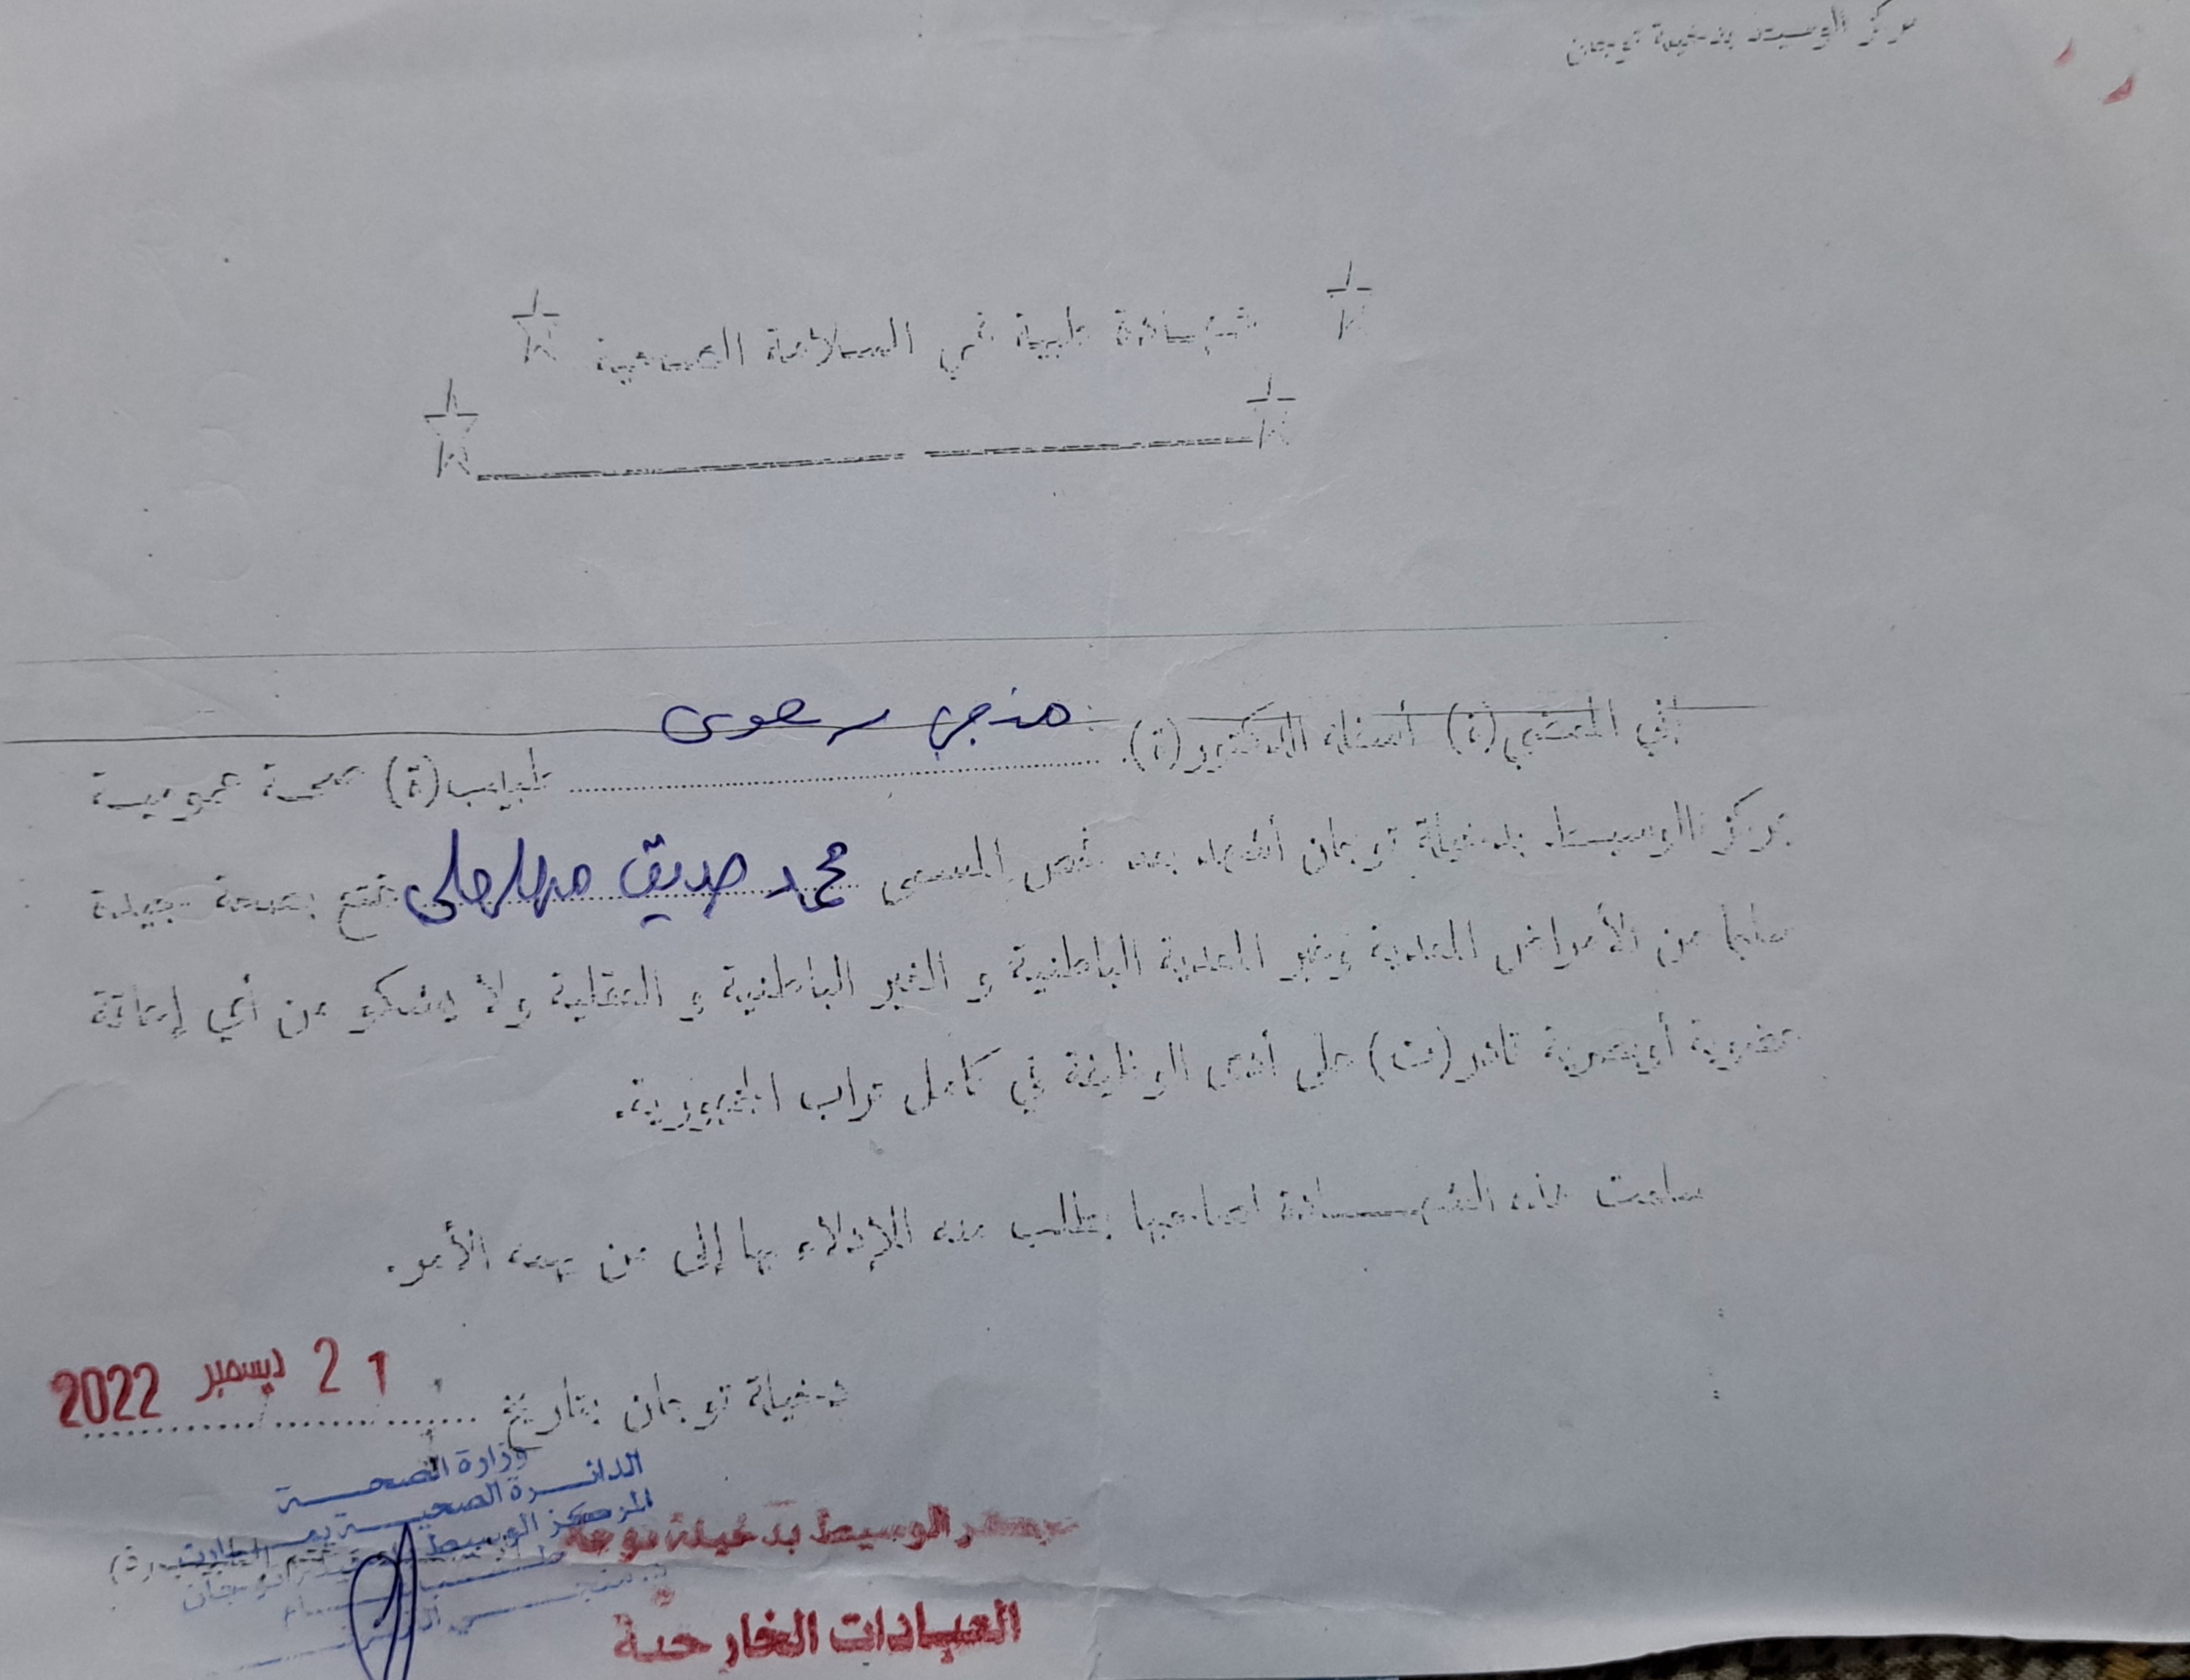 مركز الوسيط بدخيلة توجان
شهادة طبية في السلامة الصحية
إني الممضي(ة) أسفله الدكتور(ة). منجي طبيب(ة) صحة عمومية
بمركز الوسيط بدخيلة توجان أشهد بعد فحص المسمى محمد صديق يتمتع بصحة جيدة
سليما من الأمراض المعدية وغير المعدية الباطنية و الغير الباطنية و العقلية ولا يشكو من أي إعاقة
عضوية أوبصرية قادر(ت) على أدى الوظيفة في كامل تراب الجمهورية.
سلمت هذه الشهادة لصاحبها بطلب منه للإدلاء بها إلى من يهمه الأمر.
دخيلة توجان بتاريخ 21 ديسمبر 2022
وزارة الصحة
الدائرة الصحية
المركز الوسيط
الوسيط بدخيلة توجان
العيادات الخارجية